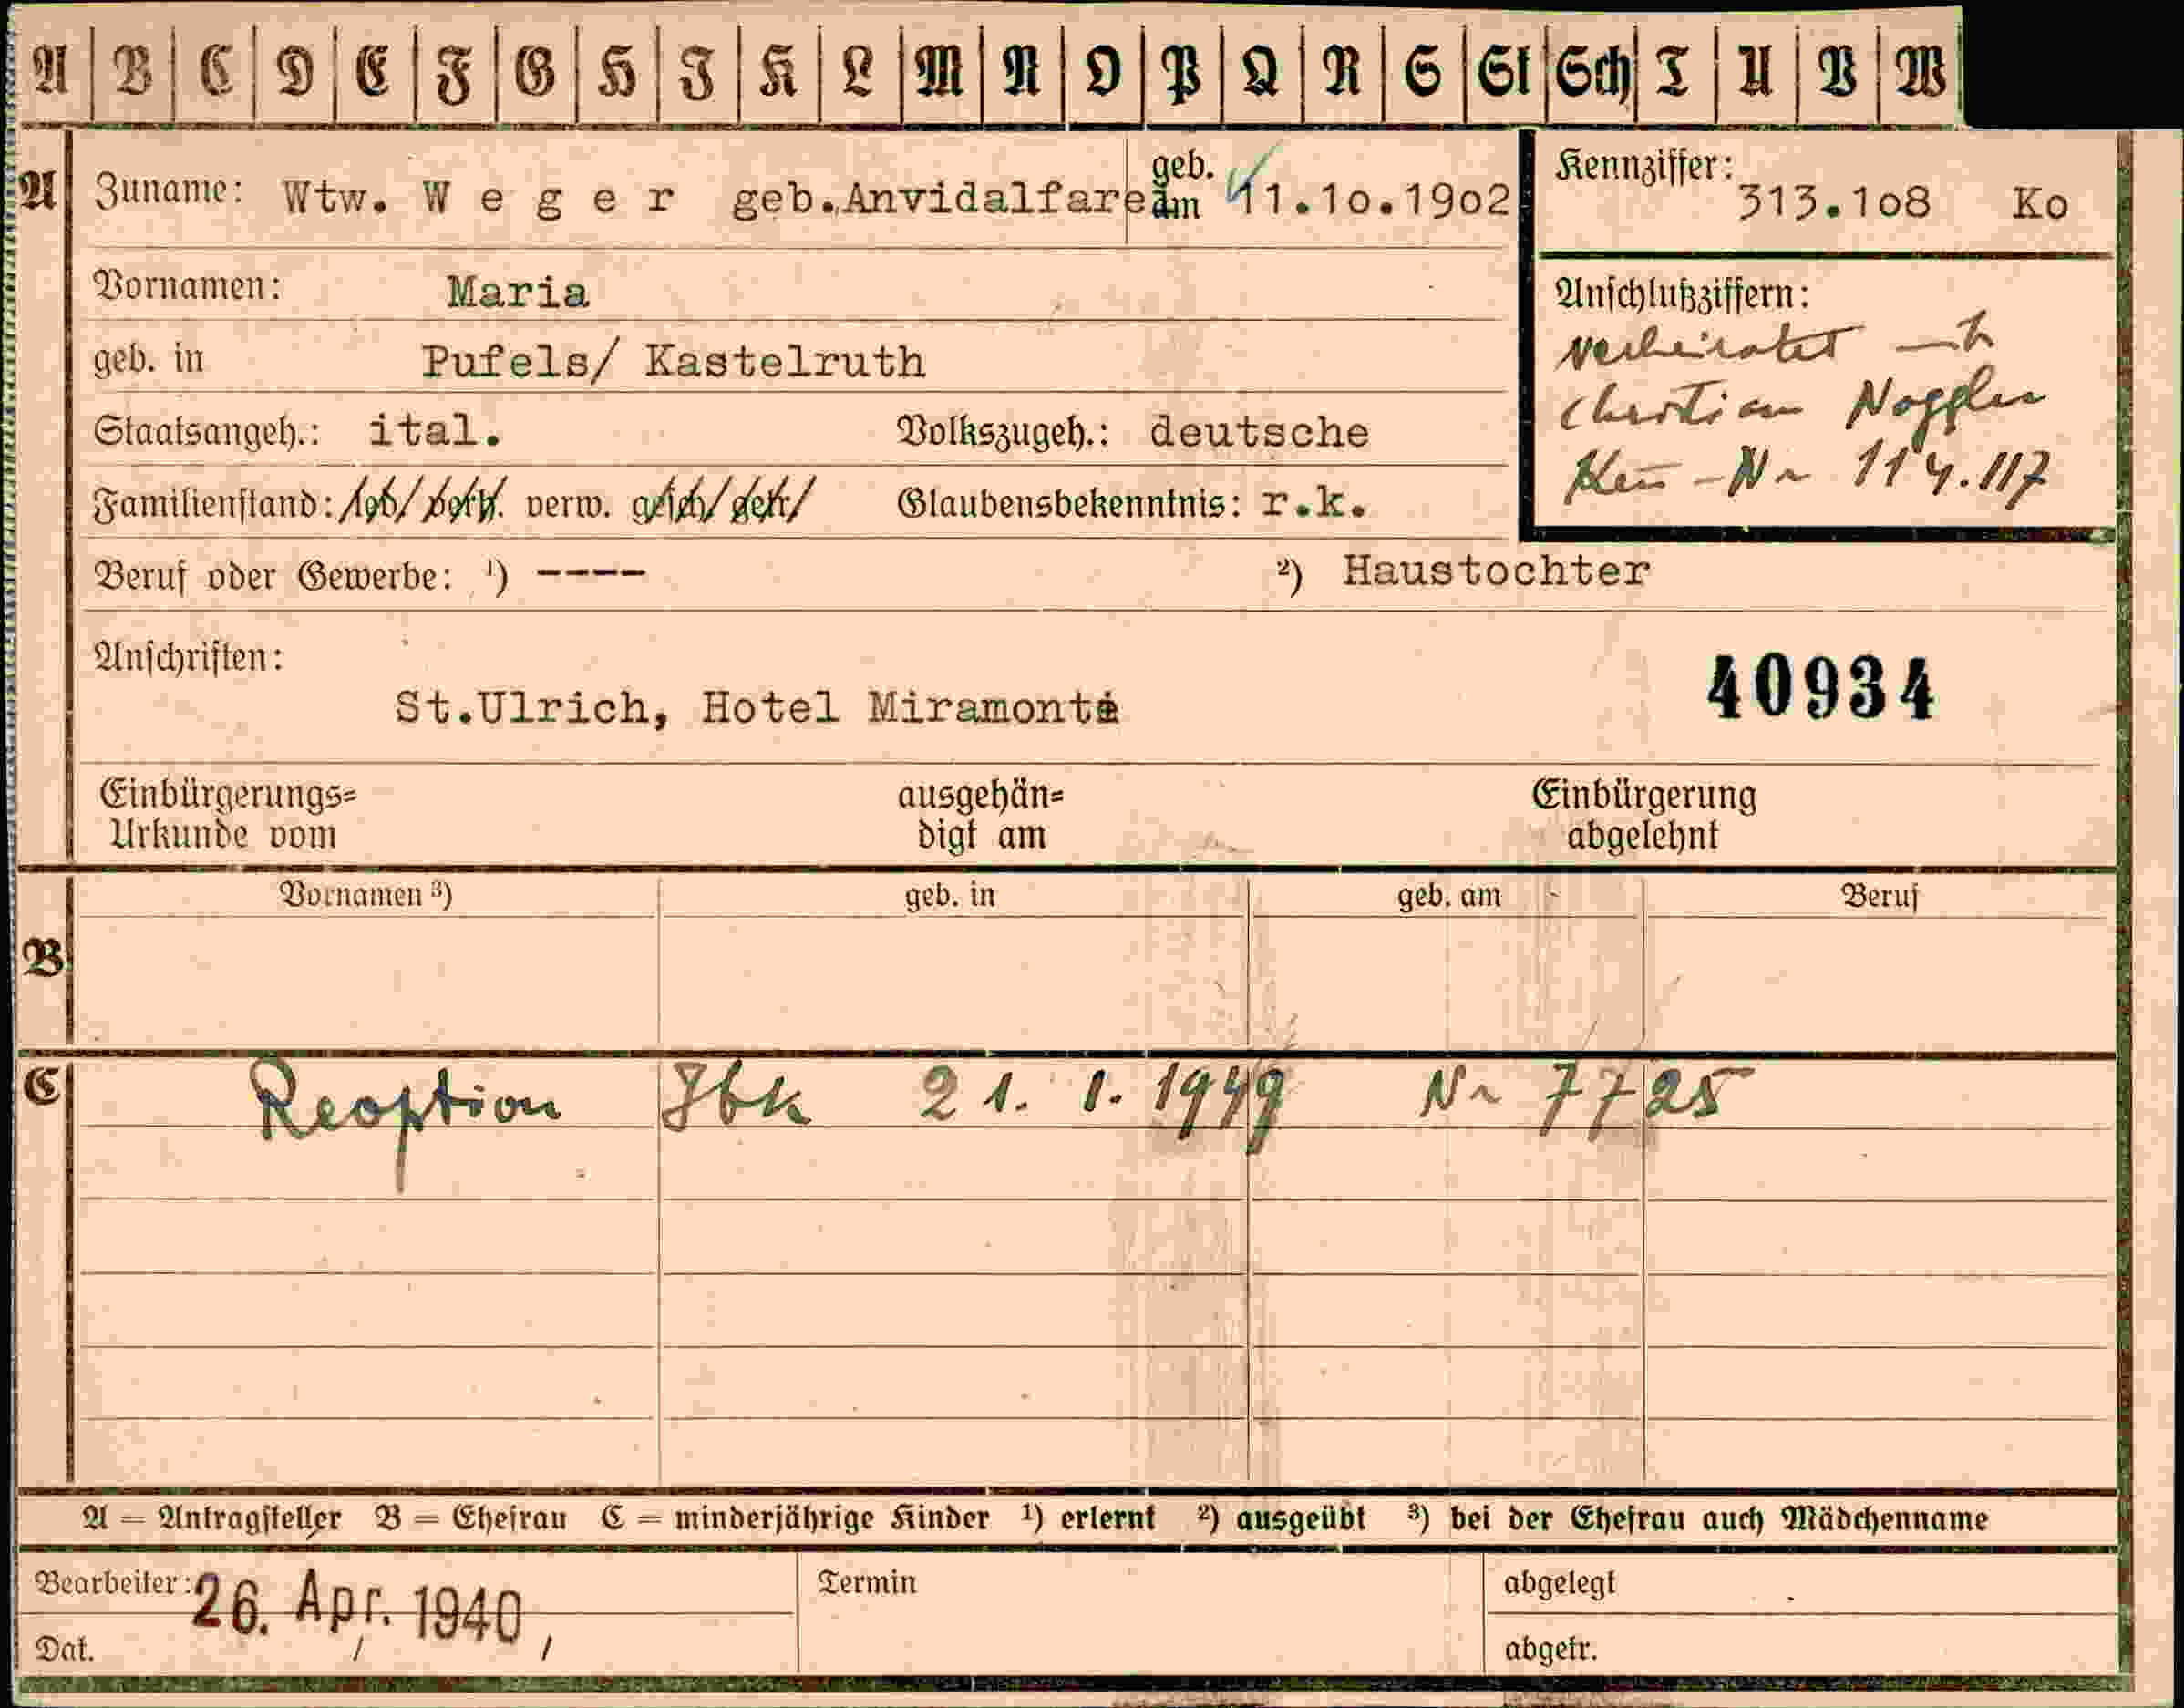 A B C D E F G H I K L M N O P Q R S St Sch T U V W
A Zuname: Wtw. W e g e r geb.Anvidalfare geb. am 11.10.1902
Kennziffer: 313.108 Ko
Vornamen: Maria
geb. in Pufels/ Kastelruth
Staatsangeh.: ital. Volkszugeh.: deutsche
Familienstand: led. verh. verw. gesch. getr. Glaubensbekenntnis: r.k.
Anschlußziffern:
verheiratet mit
Christian Noggler
Ken-Nr 114.117
Beruf oder Gewerbe: ¹) ---- ²) Haustochter
Anschriften:
St.Ulrich, Hotel Miramonti
40934
Einbürgerungs=
Urkunde vom
ausgehän=
digt am
Einbürgerung
abgelehnt
B
Vornamen ³) geb. in geb. am Beruf
C
Reoption Ibk 21. 1. 1949 Nr 7725
A = Antragsteller B = Ehefrau C = minderjährige Kinder ¹) erlernt ²) ausgeübt ³) bei der Ehefrau auch Mädchenname
Bearbeiter: 26. Apr. 1940
Dat.
Termin
abgelegt
abgetr.